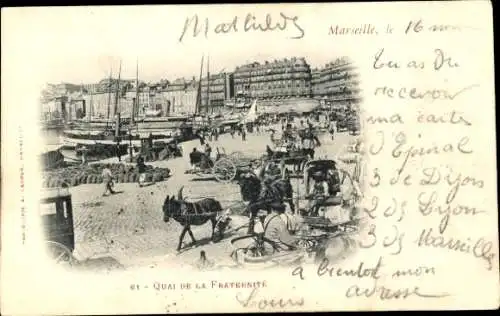 Mathilde
Marseille, le 16 nov
Tu as du
recevoir
ma carte
d'Epinal
3 de Dijon
2 de Lyon
3 de Marseille
a bientot mon
adresse
61 - QUAI DE LA FRATERNITÉ